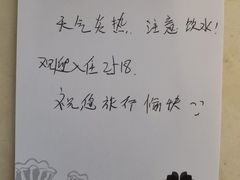 天气炎热，注意饮水！
入住2518.
祝您旅行愉快